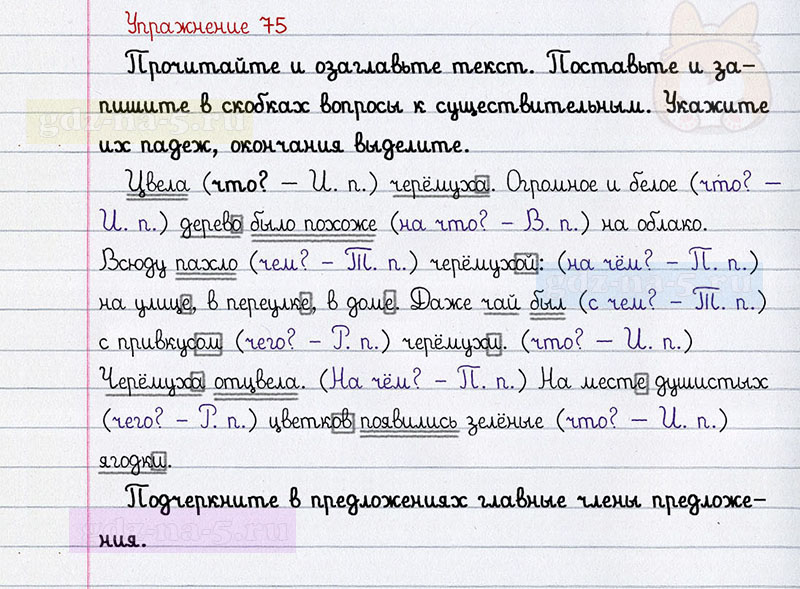 Упражнение 75
Прочитайте и озаглавьте текст. Поставьте и за-
пишите в скобках вопросы к существительным. Укажите
их падеж, окончания выделите.
Цвела (что? – И. п.) черёмуха. Огромное и белое (что? –
И. п.) дерево было похоже (на что? – В. п.) на облако.
Всюду пахло (чем? – Т. п.) черёмухой: (на чём? – П. п.)
на улице, в переулке, в доме. Даже чай был (с чем? – Т. п.)
с привкусом (чего? – Р. п.) черёмухи. (что? – И. п.)
Черёмуха отцвела. (На чём? – П. п.) На месте душистых
(чего? – Р. п.) цветков появились зелёные (что? – И. п.)
ягодки.
Подчеркните в предложениях главные члены предложе-
ния.
gdz-na-5.ru
gdz-na-5.ru
gdz-na-5.ru